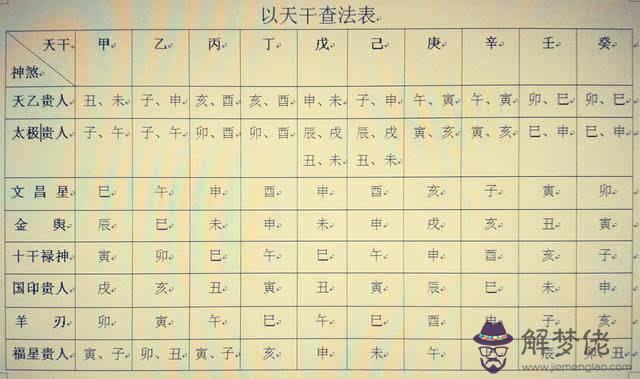 以天干查法表
天干 甲 乙 丙 丁 戊 己 庚 辛 壬 癸
神煞
天乙贵人 丑、未 子、申 亥、酉 亥、酉 申、未 子、申 午、寅 午、寅 卯、巳 卯、巳
太极贵人 子、午 子、午 卯、酉 卯、酉 辰、戌 辰、戌 寅、亥 寅、亥 巳、申 巳、申
丑、未 丑、未
文昌星 巳 午 申 酉 申 酉 亥 子 寅 卯
金舆 辰 巳 未 申 未 申 戌 亥 丑 寅
十干禄神 寅 卯 巳 午 巳 午 申 酉 亥 子
国印贵人 戌 亥 丑 寅 丑 寅 辰 巳 未 申
羊刃 卯 寅 午 巳 午 巳 酉 申 子 亥
福星贵人 寅、子 卯、丑 寅、子 亥 申 未 午 辰 卯、丑
解梦佬
www.jiemenglao.com